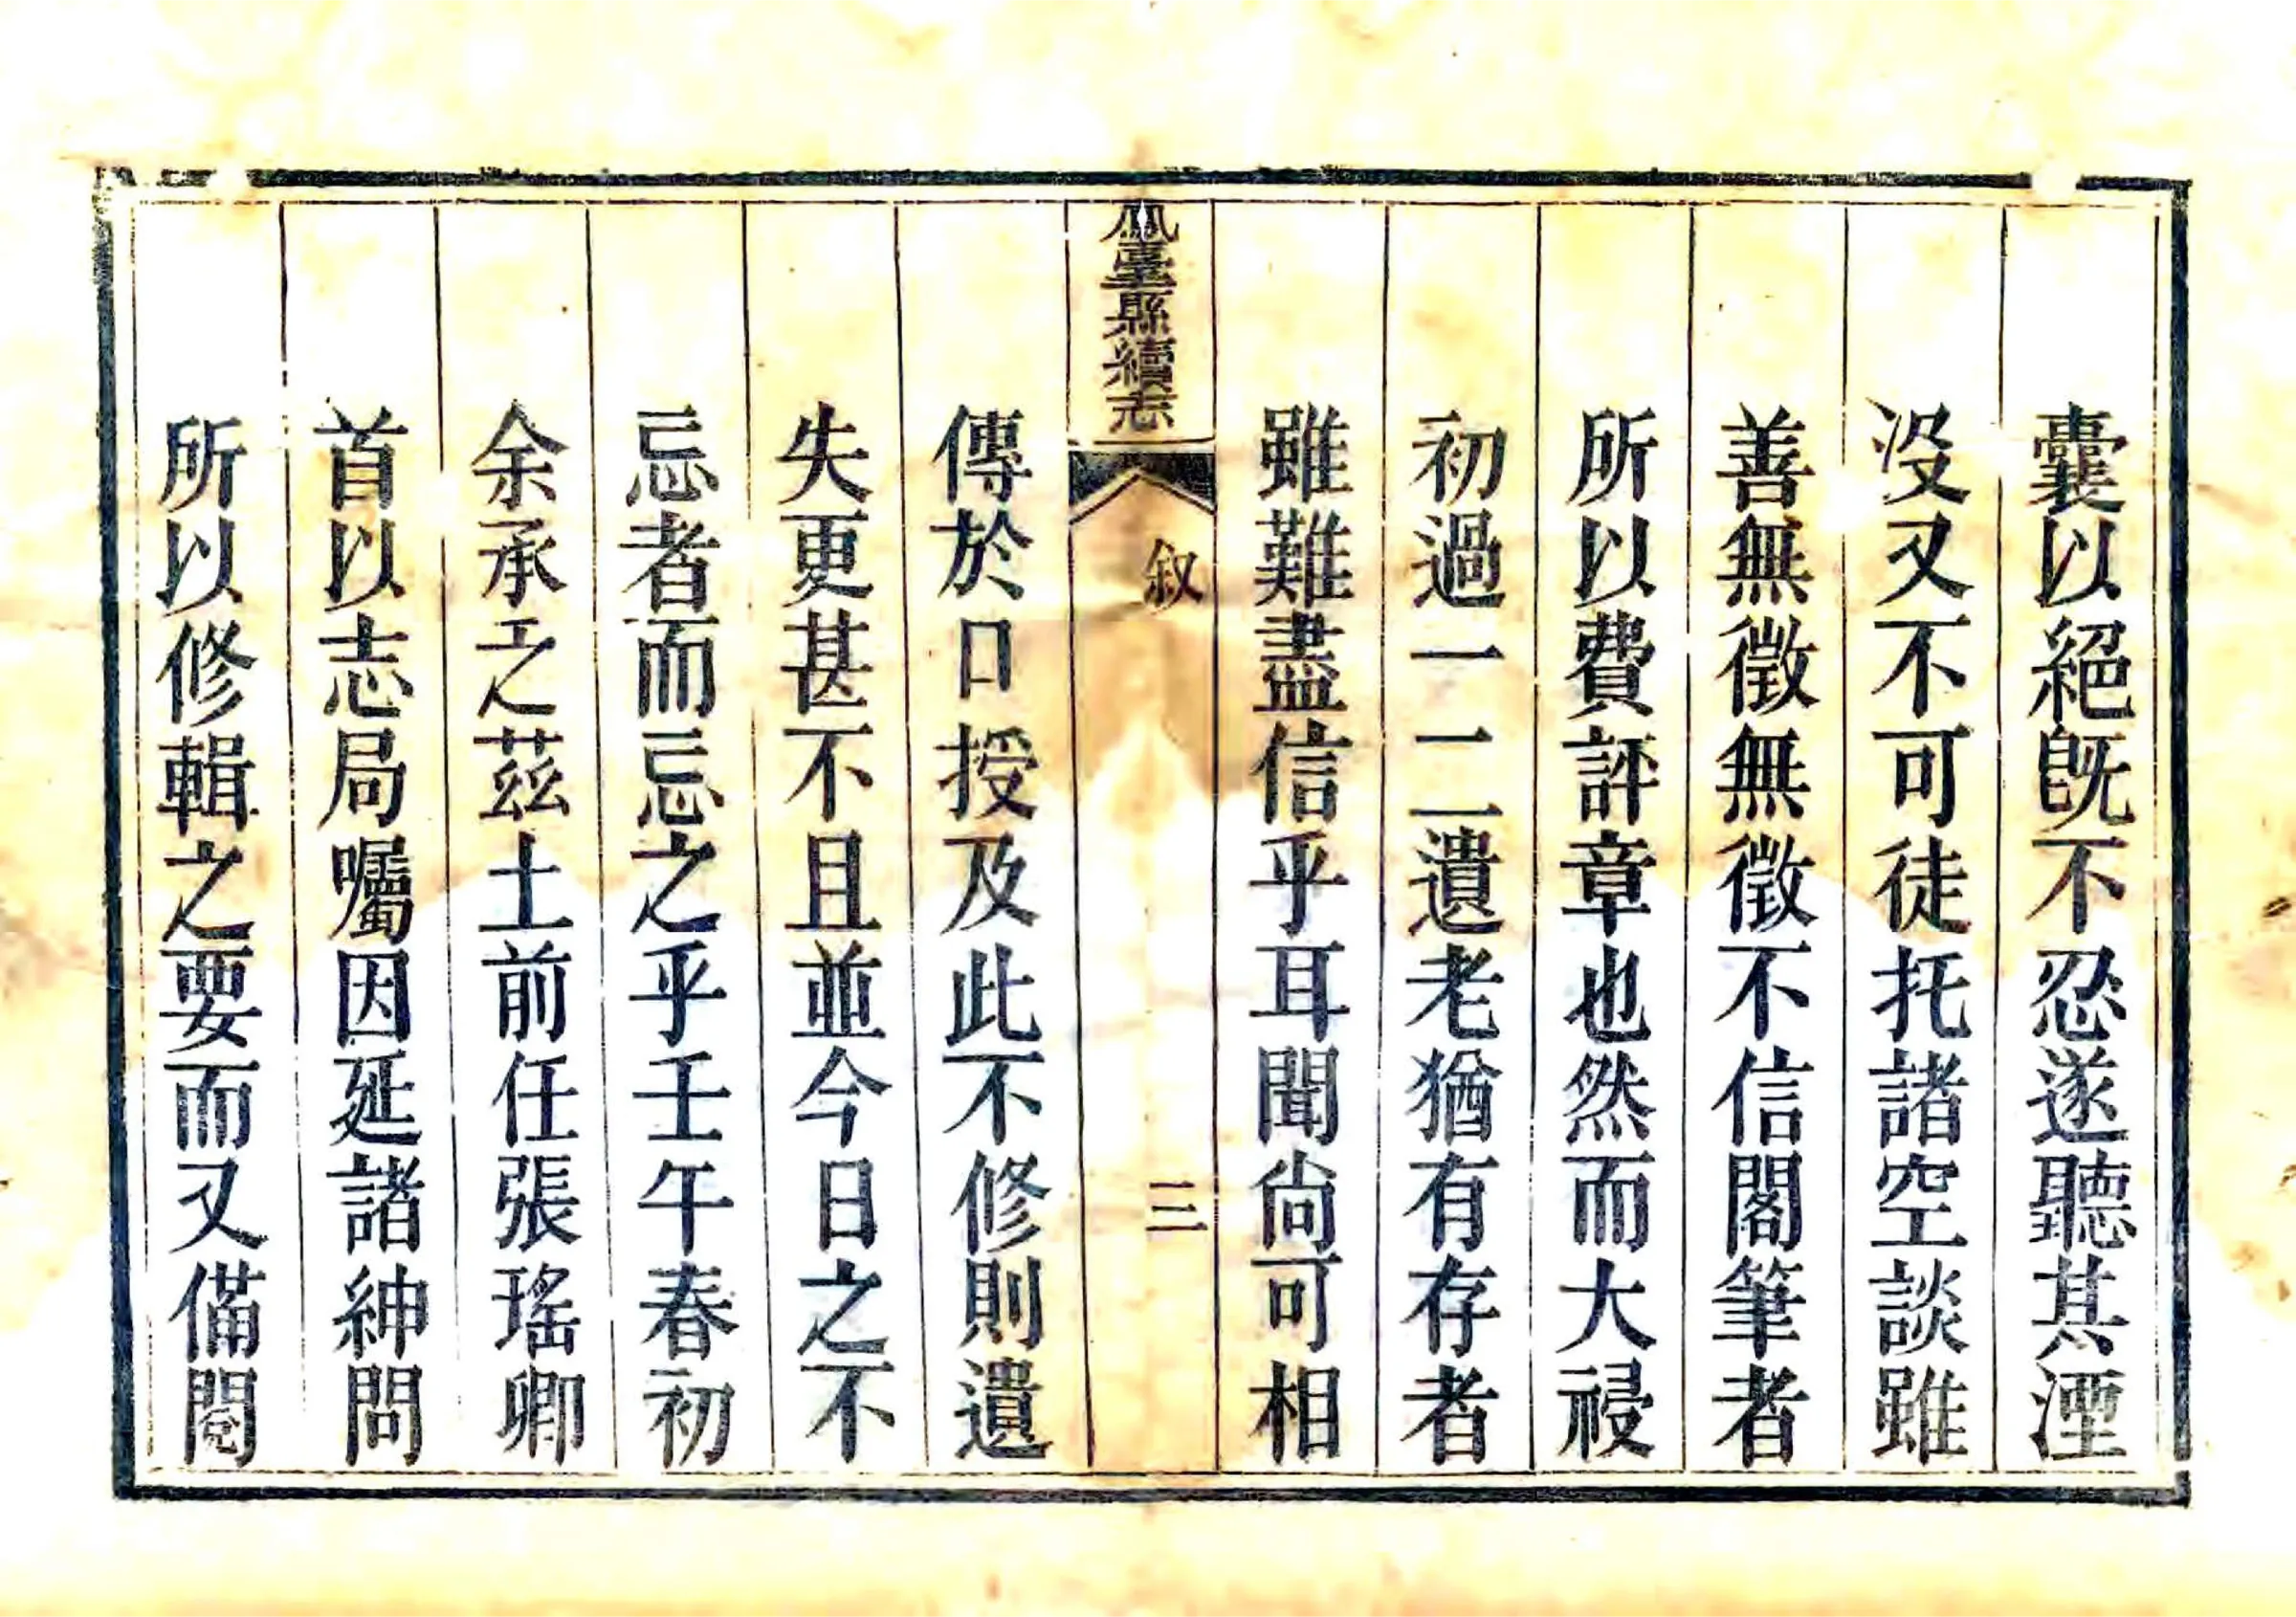 囊以絕旣不忍遂聽其湮
沒又不可徒托諸空談雖
善無徵無徵不信閣筆者
所以費評章也然而大祲
初過一二遺老猶有存者
雖難盡信乎耳聞尙可相
鳳臺縣續志
叙
三
傳於口授及此不修則遺
失更甚不且並今日之不
忘者而忘之乎壬午春初
余承乏茲土前任張瑤卿
首以志局囑因延諸紳問
所以修輯之要而又備閱